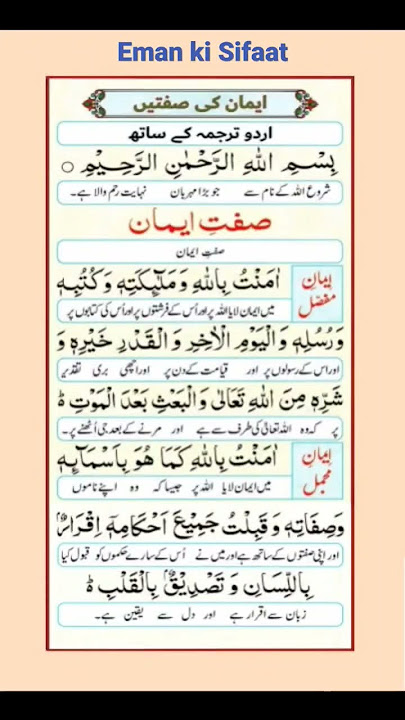 Eman ki Sifaat
ایمان کی صفتیں
اردو ترجمہ کے ساتھ
بِسْمِ اللهِ الرَّحْمٰنِ الرَّحِيْمِ ○
شروع اللہ کے نام سے جو بڑا مہربان نہایت رحم والا ہے۔
صفتِ ایمان
صفتِ ایمان
ایمانِ مفصّل
اٰمَنْتُ بِاللهِ وَمَلٰٓئِكَتِهٖ وَكُتُبِهٖ
میں ایمان لایا اللہ پر اور اُس کے فرشتوں پر اور اُس کی کتابوں پر
وَرُسُلِهٖ وَالْيَوْمِ الْاٰخِرِ وَالْقَدْرِ خَيْرِهٖ وَ
اور اس کے رسولوں پر اور قیامت کے دن پر اور اچھی بری تقدیر
شَرِّهٖ مِنَ اللهِ تَعَالٰى وَالْبَعْثِ بَعْدَ الْمَوْتِ ؕ
پر کہ وہ اللہ تعالیٰ کی طرف سے ہے اور مرنے کے بعد جی اُٹھنے پر۔
ایمانِ مجمل
اٰمَنْتُ بِاللهِ كَمَا هُوَ بِاَسْمَآئِهٖ
میں ایمان لایا اللہ پر جیسا کہ وہ اپنے ناموں
وَصِفَاتِهٖ وَقَبِلْتُ جَمِيْعَ اَحْكَامِهٖ اِقْرَارٌۢ
اور اپنی صفتوں کے ساتھ ہے اور میں نے اُس کے سارے حکموں کو قبول کیا
بِاللِّسَانِ وَتَصْدِيْقٌۢ بِالْقَلْبِ ؕ
زبان سے اقرار ہے اور دل سے یقین ہے۔